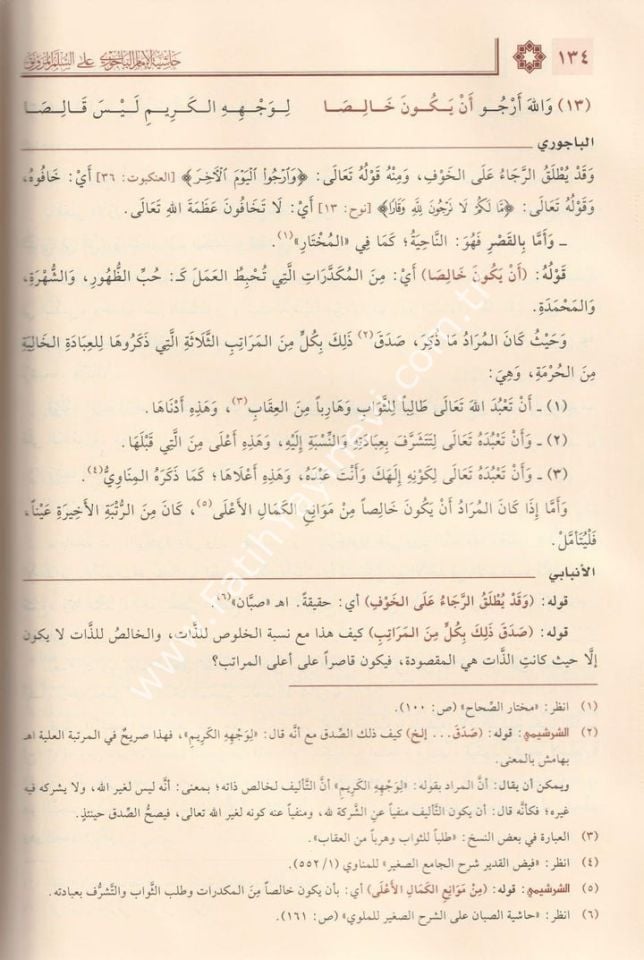 ١٣٤
حاشية الإمام الباجوري على السلم المرونق
(١٣) وَاللهَ أَرْجُو أَنْ يَكُونَ خَالِصَا لِوَجْهِهِ الكَرِيمِ لَيْسَ قَالِصَا
الباجوري
وَقَدْ يُطْلَقُ الرَّجَاءُ عَلَى الخَوْفِ، وَمِنْهُ قَوْلُهُ تَعَالَى: ﴿وَٱرْجُوا۟ ٱلْيَوْمَ ٱلْأَخِرَ﴾ [العنكبوت: ٣٦] أَيْ: خَافُوهُ،
وَقَوْلُهُ تَعَالَى: ﴿مَّا لَكُمْ لَا تَرْجُونَ لِلَّهِ وَقَارًا﴾ [نوح: ١٣] أَيْ: لَا تَخَافُونَ عَظَمَةَ اللهِ تَعَالَى.
ـ وَأَمَّا بِالقَصْرِ فَهُوَ: النَّاحِيَةُ؛ كَمَا فِي «المُخْتَارِ»(١).
قَوْلُهُ: (أَنْ يَكُونَ خَالِصَا) أَيْ: مِنَ المُكَدِّرَاتِ الَّتِي تُحْبِطُ العَمَلَ كَـ: حُبِّ الظُّهُورِ، وَالشُّهْرَةِ،
وَالمَحْمَدَةِ.
وَحَيْثُ كَانَ المُرَادُ مَا ذُكِرَ، صَدَقَ(٢) ذَلِكَ بِكُلٍّ مِنَ المَرَاتِبِ الثَّلَاثَةِ الَّتِي ذَكَرُوهَا لِلعِبَادَةِ الخَالِيَةِ
مِنَ الحُرْمَةِ، وَهِيَ:
(١) ـ أَنْ تَعْبُدَ اللهَ تَعَالَى طَالِباً لِلثَّوَابِ وَهَارِباً مِنَ العِقَابِ(٣)، وَهَذِهِ أَدْنَاهَا.
(٢) ـ وَأَنْ تَعْبُدَهُ تَعَالَى لِتَتَشَرَّفَ بِعِبَادَتِهِ وَالنِّسْبَةِ إِلَيْهِ، وَهَذِهِ أَعْلَى مِنَ الَّتِي قَبْلَهَا.
(٣) ـ وَأَنْ تَعْبُدَهُ تَعَالَى لِكَوْنِهِ إِلَهَكَ وَأَنْتَ عَبْدُهُ، وَهَذِهِ أَعْلَاهَا؛ كَمَا ذَكَرَهُ المِنَاوِيُّ(٤).
وَأَمَّا إِذَا كَانَ المُرَادُ أَنْ يَكُونَ خَالِصاً مِنْ مَوَانِعِ الكَمَالِ الأَعْلَى(٥)، كَانَ مِنَ الرُّتْبَةِ الأَخِيرَةِ عَيْناً،
فَلْيُتَأَمَّلْ.
الأنبابي
قوله: (وَقَدْ يُطْلَقُ الرَّجَاءُ عَلَى الخَوْفِ) أي: حقيقةً. اهـ «صبَّان»(٦).
قوله: (صَدَقَ ذَلِكَ بِكُلٍّ مِنَ المَرَاتِبِ) كيف هذا مع نسبة الخلوص للذَّات، والخالصُ للذَّات لا يكون
إلَّا حيث كانتِ الذَّات هي المقصودة، فيكون قاصراً على أعلى المراتب؟
(١) انظر: «مختار الصِّحاح» (ص: ١٠٠).
(٢) الشرشيمي: قوله: (صَدَقَ... إلخ) كيف ذلك الصِّدق مع أنَّه قال: «لِوَجْهِهِ الكَرِيمِ»، فهذا صريحٌ في المرتبة العلية اهـ
بهامش بالمعنى.
ويمكن أن يقال: أنَّ المراد بقوله: «لِوَجْهِهِ الكَرِيمِ» أنَّ التَّأليف لخالص ذاته؛ بمعنى: أنَّه ليس لغير الله، ولا يشركه فيه
غيره؛ فكأنَّه قال: أن يكون التَّأليف منفياً عن الشَّركة لله، ومنفياً عنه كونه لغير الله تعالى، فيصحُّ الصِّدق حينئذٍ.
(٣) العبارة في بعض النسخ: «طلباً للثواب وهرباً من العقاب».
(٤) انظر: «فيض القدير شرح الجامع الصغير» للمناوي (١/ ٥٥٢).
(٥) الشرشيمي: قوله: (مِنْ مَوَانِعِ الكَمَالِ الأَعْلَى) أي: بأن يكون خالصاً مِنَ المكدرات وطلب الثَّواب والتَّشرُّف بعبادته.
(٦) انظر: «حاشية الصبان على الشرح الصغير للملوي» (ص: ١٦١).
www.fatihyayinevi.com.tr